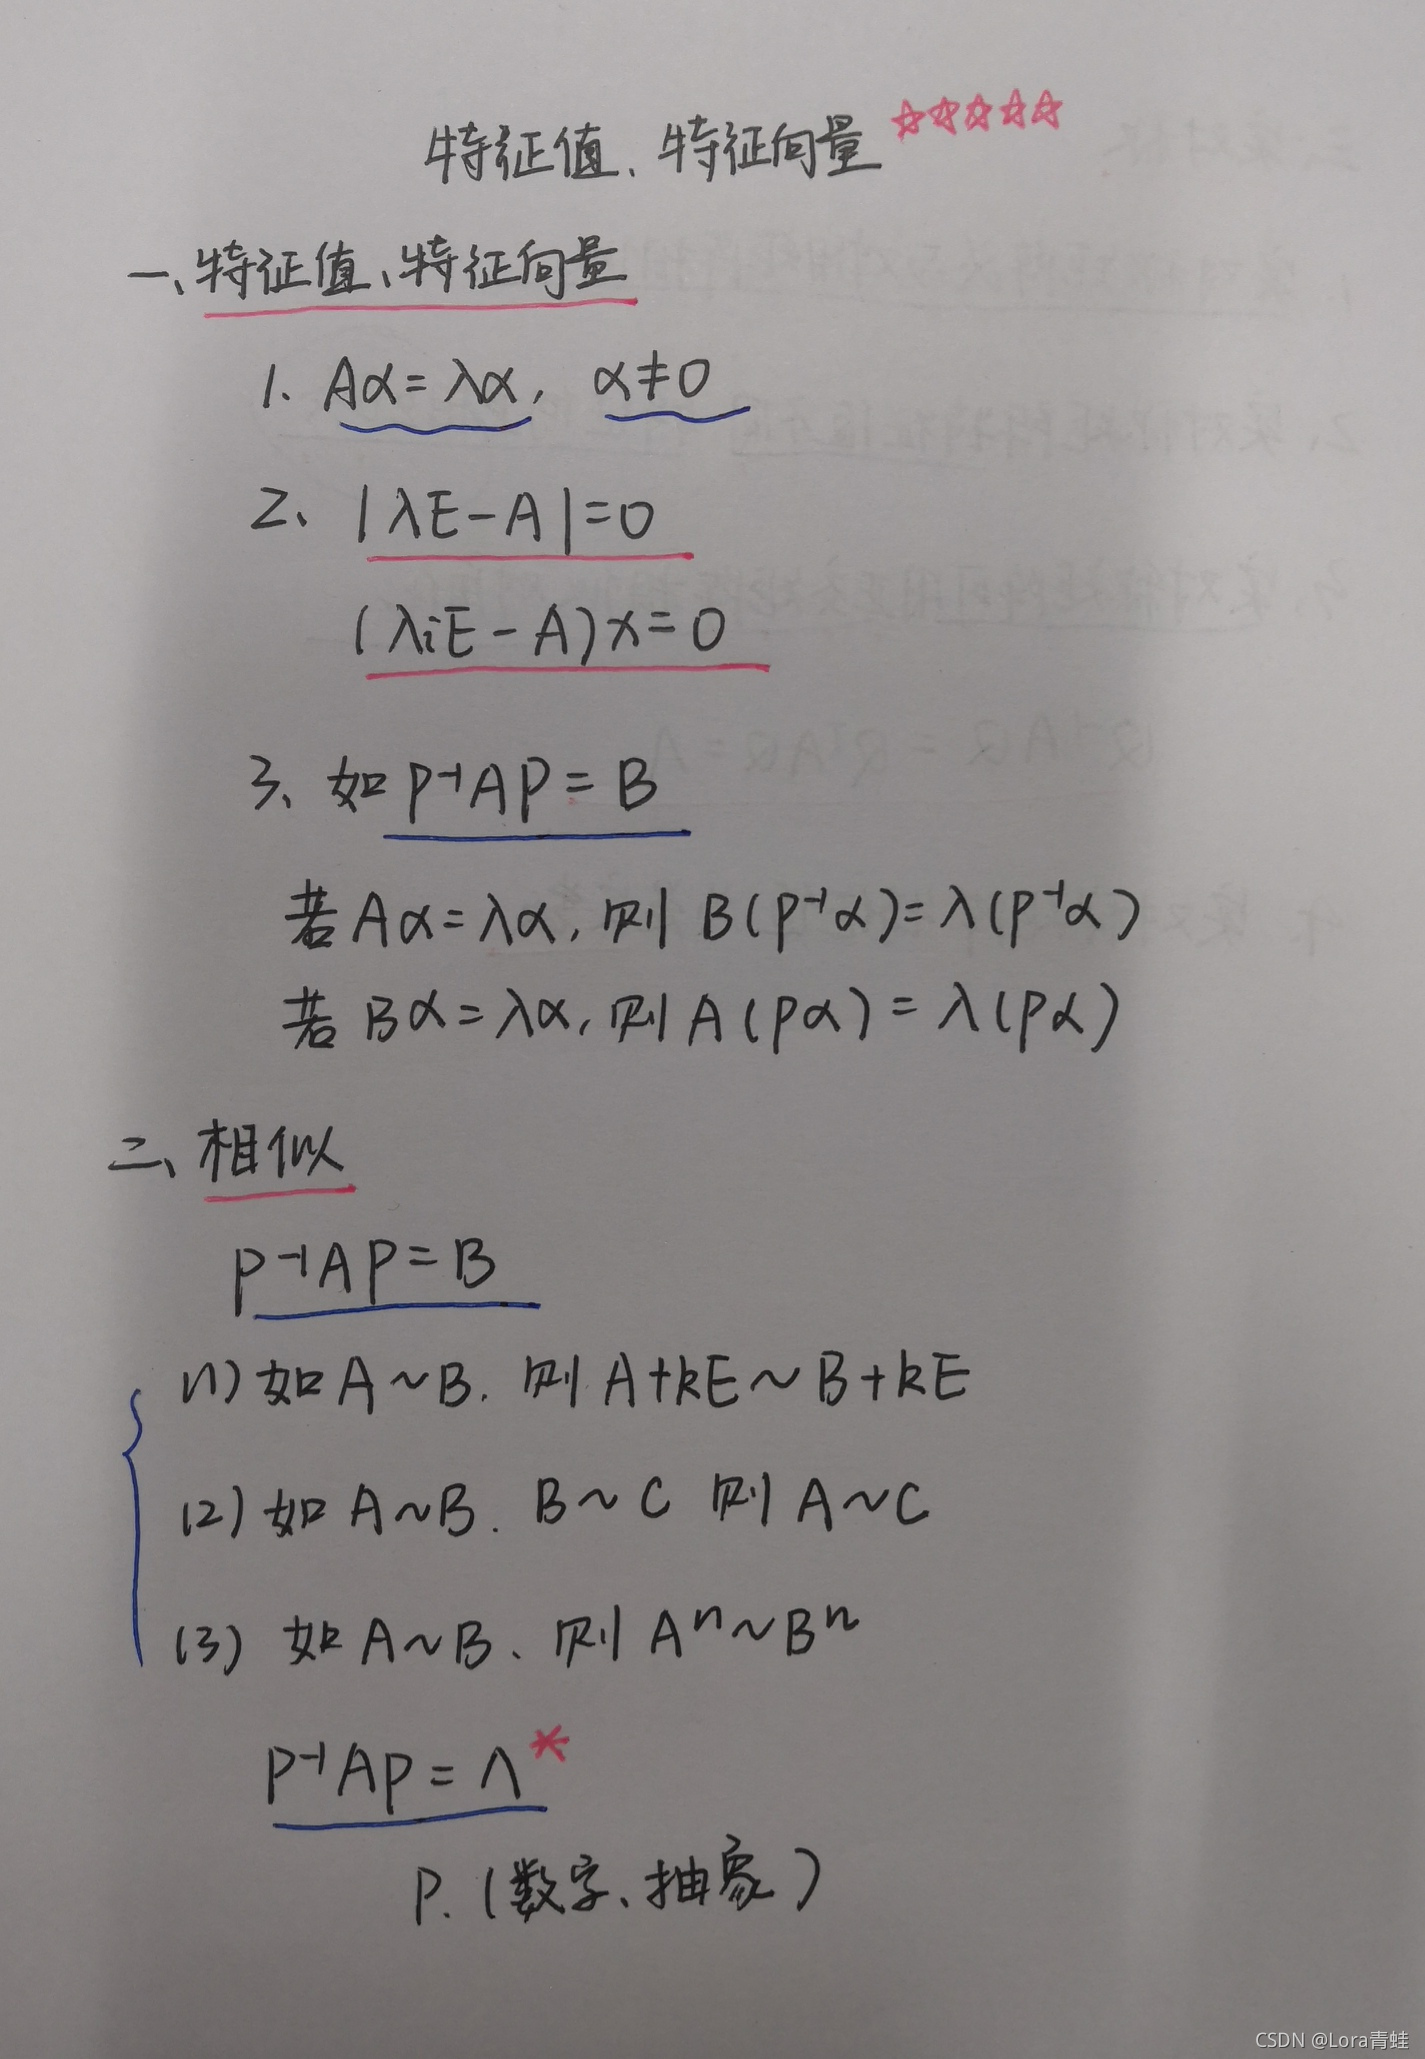 特征值、特征向量 ☆☆☆☆☆
一、特征值、特征向量
1. Aα=λα, α≠0
2、 |λE-A|=0
(λiE-A)x=0
3、如 P⁻¹AP=B
若Aα=λα, 则 B(P⁻¹α)=λ(P⁻¹α)
若Bα=λα, 则 A(Pα)=λ(Pα)
二、相似
P⁻¹AP=B
(1) 如A~B. 则A+kE~B+kE
(2) 如A~B. B~C 则A~C
(3) 如A~B、则Aⁿ~Bⁿ
P⁻¹AP=Λ *
P. (数字、抽象)
CSDN @Lora青蛙